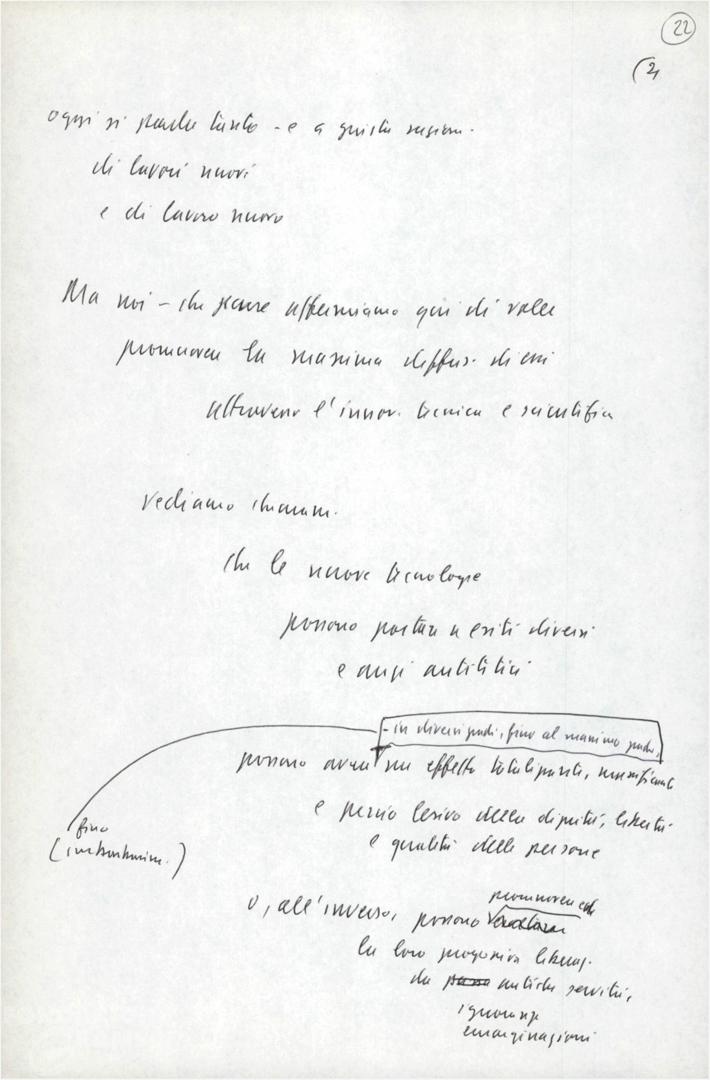 22
(2
oggi si parla tanto - e a giusta ragion.
di lavori nuovi
e di lavoro nuovo
Ma noi - che pure affermiamo qui di voler
promuovere la massima diffus. di essi
attraverso l'innov. tecnica e scientifica
vediamo chiaram.
che le nuove tecnologie
possono portare a esiti diversi
e anzi antitetici
- in diversi gradi, fino al massimo grado,
possono avere un effetto totalizzante, massificante
e perciò lesivo della dignità, libertà
e qualità delle persone
fino
o, all'inverso, possono
promuovere
la loro progressiva liberaz.
da antiche servitù,
ignoranze
emarginazioni